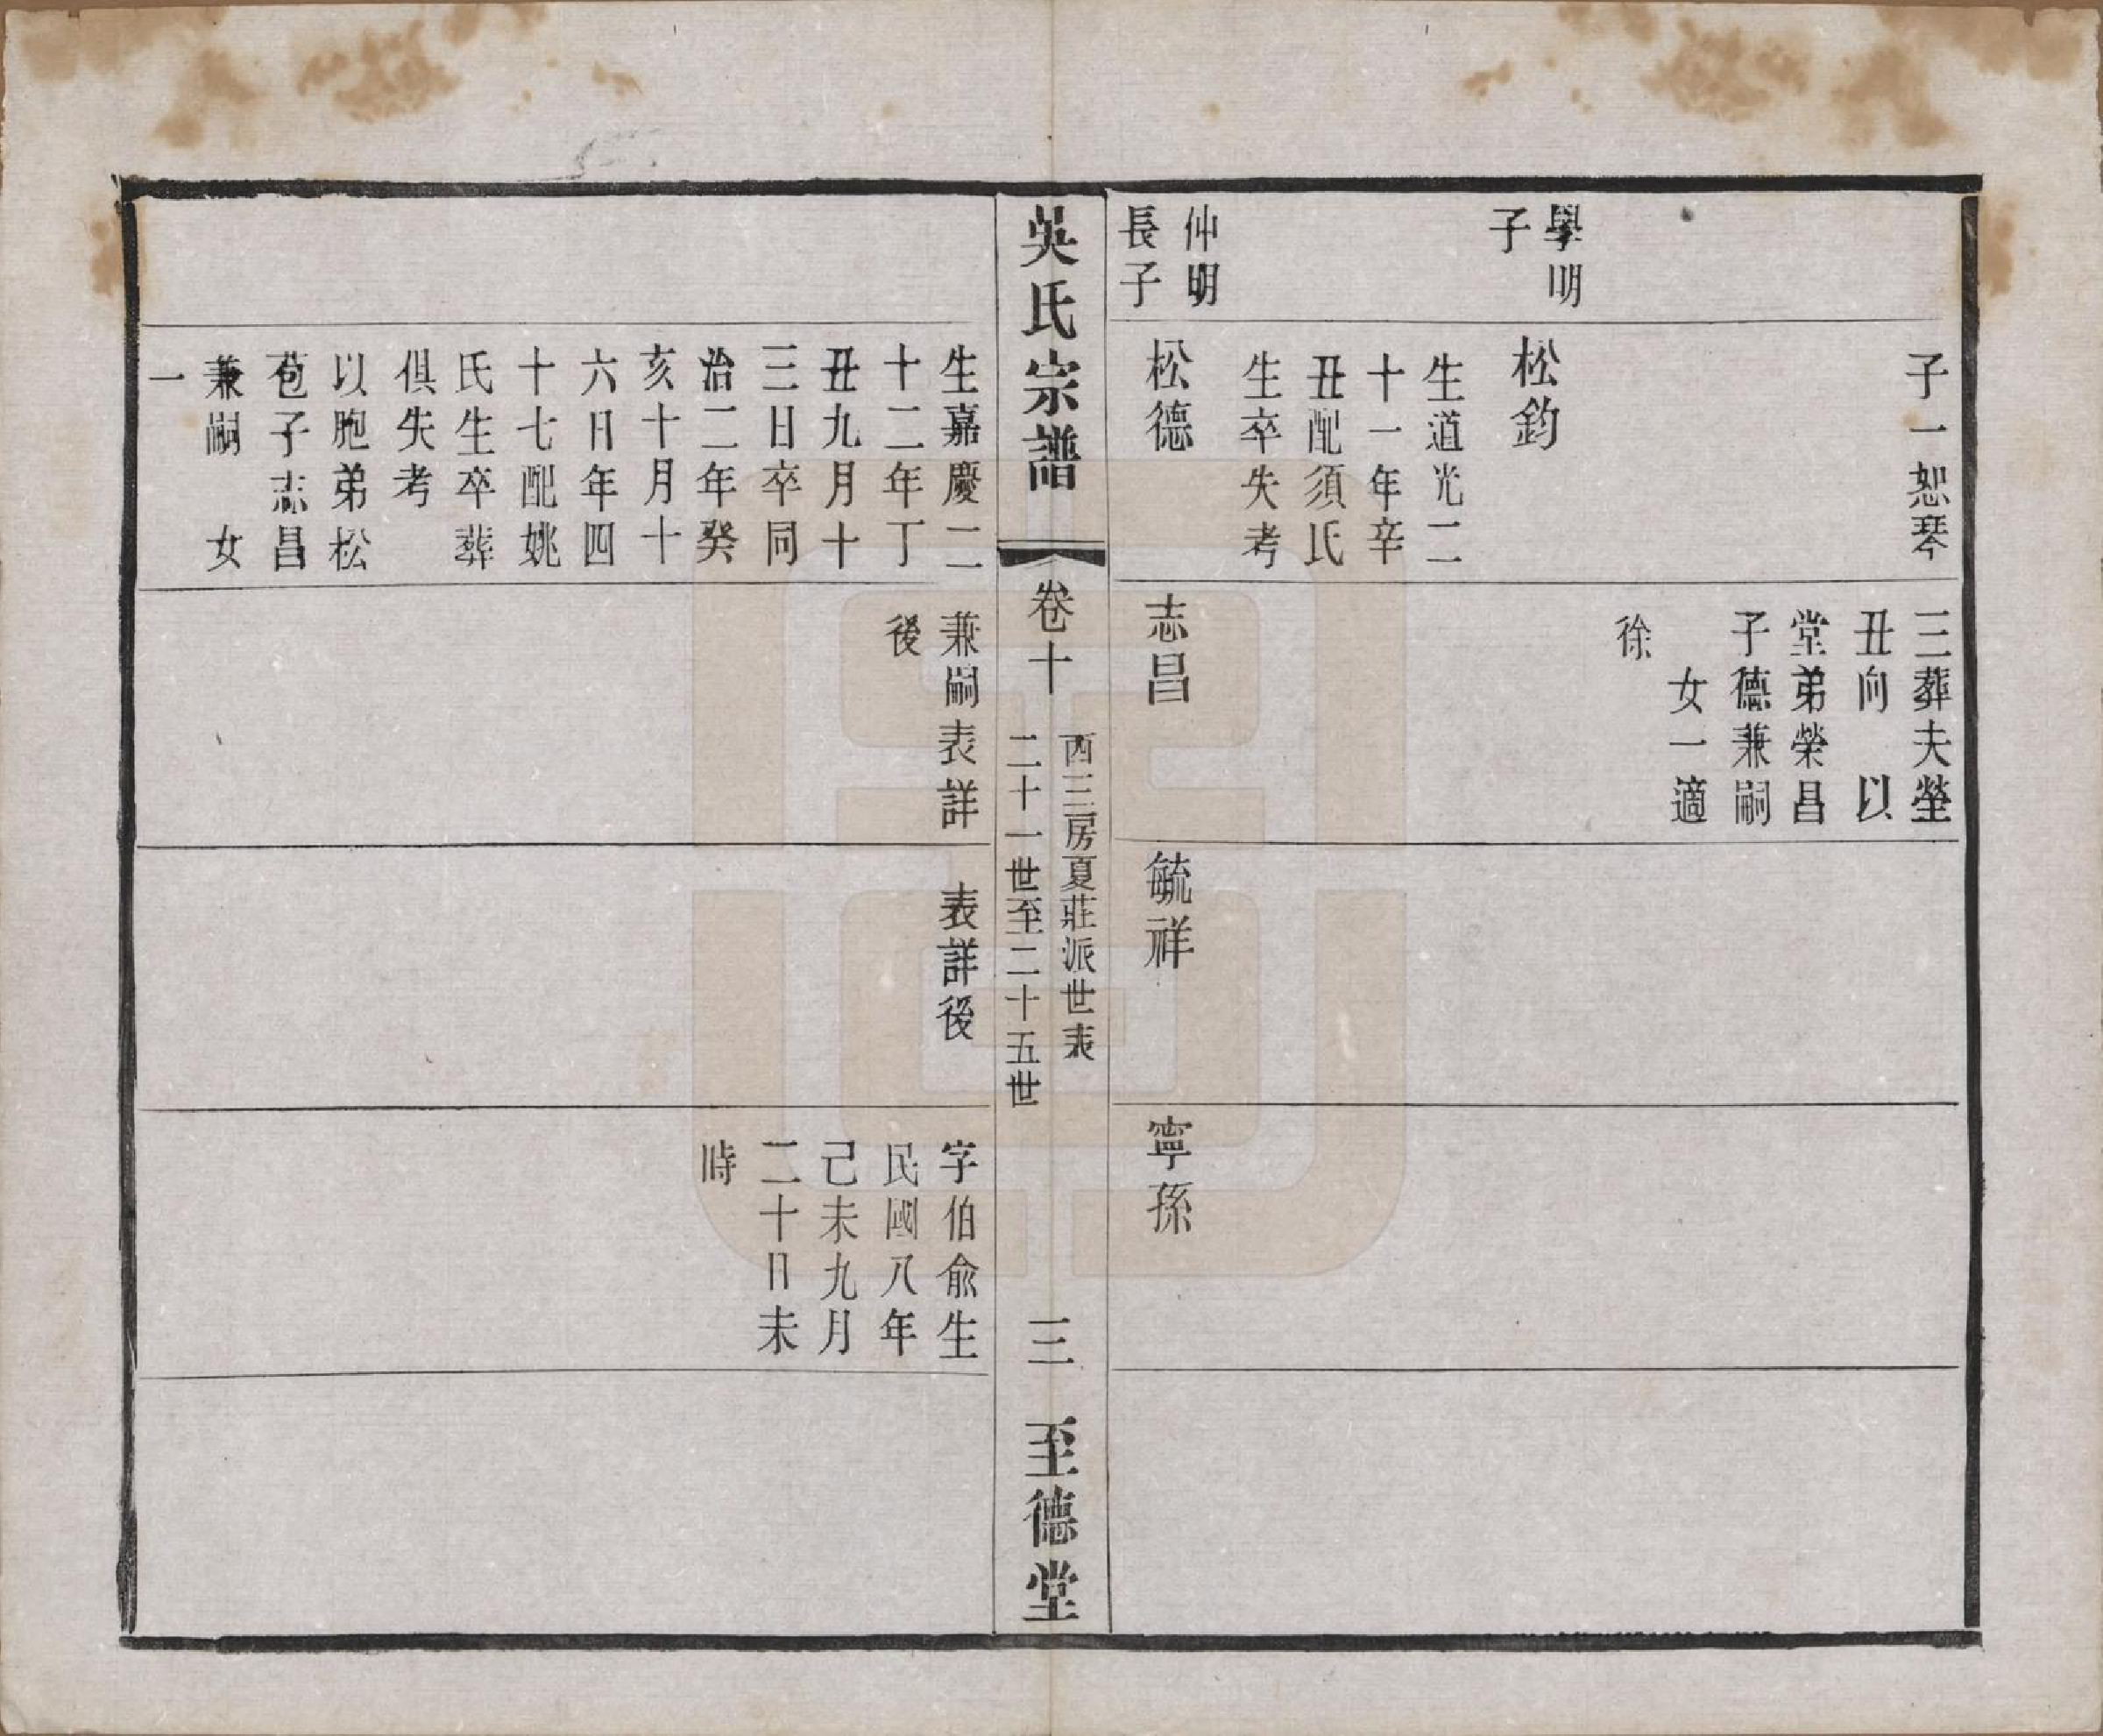 子一恕琴
三葬夫塋
丑向　以
堂弟榮昌
子德兼嗣
女一適
徐
學明
子
松鈞
生道光二
十一年辛
丑配須氏
生卒失考
仲明
長子
松德
志昌
毓祥
寧孫
吳氏宗譜
卷十
西三房夏莊派世表
二十一世至二十五世
三
至德堂
生嘉慶二
十二年丁
丑九月十
三日卒同
治二年癸
亥十月十
六日年四
十七配姚
氏生卒葬
俱失考
以胞弟松
苞子志昌
兼嗣　女
一
兼嗣表詳
後
表詳後
字伯俞生
民國八年
己未九月
二十日未
時